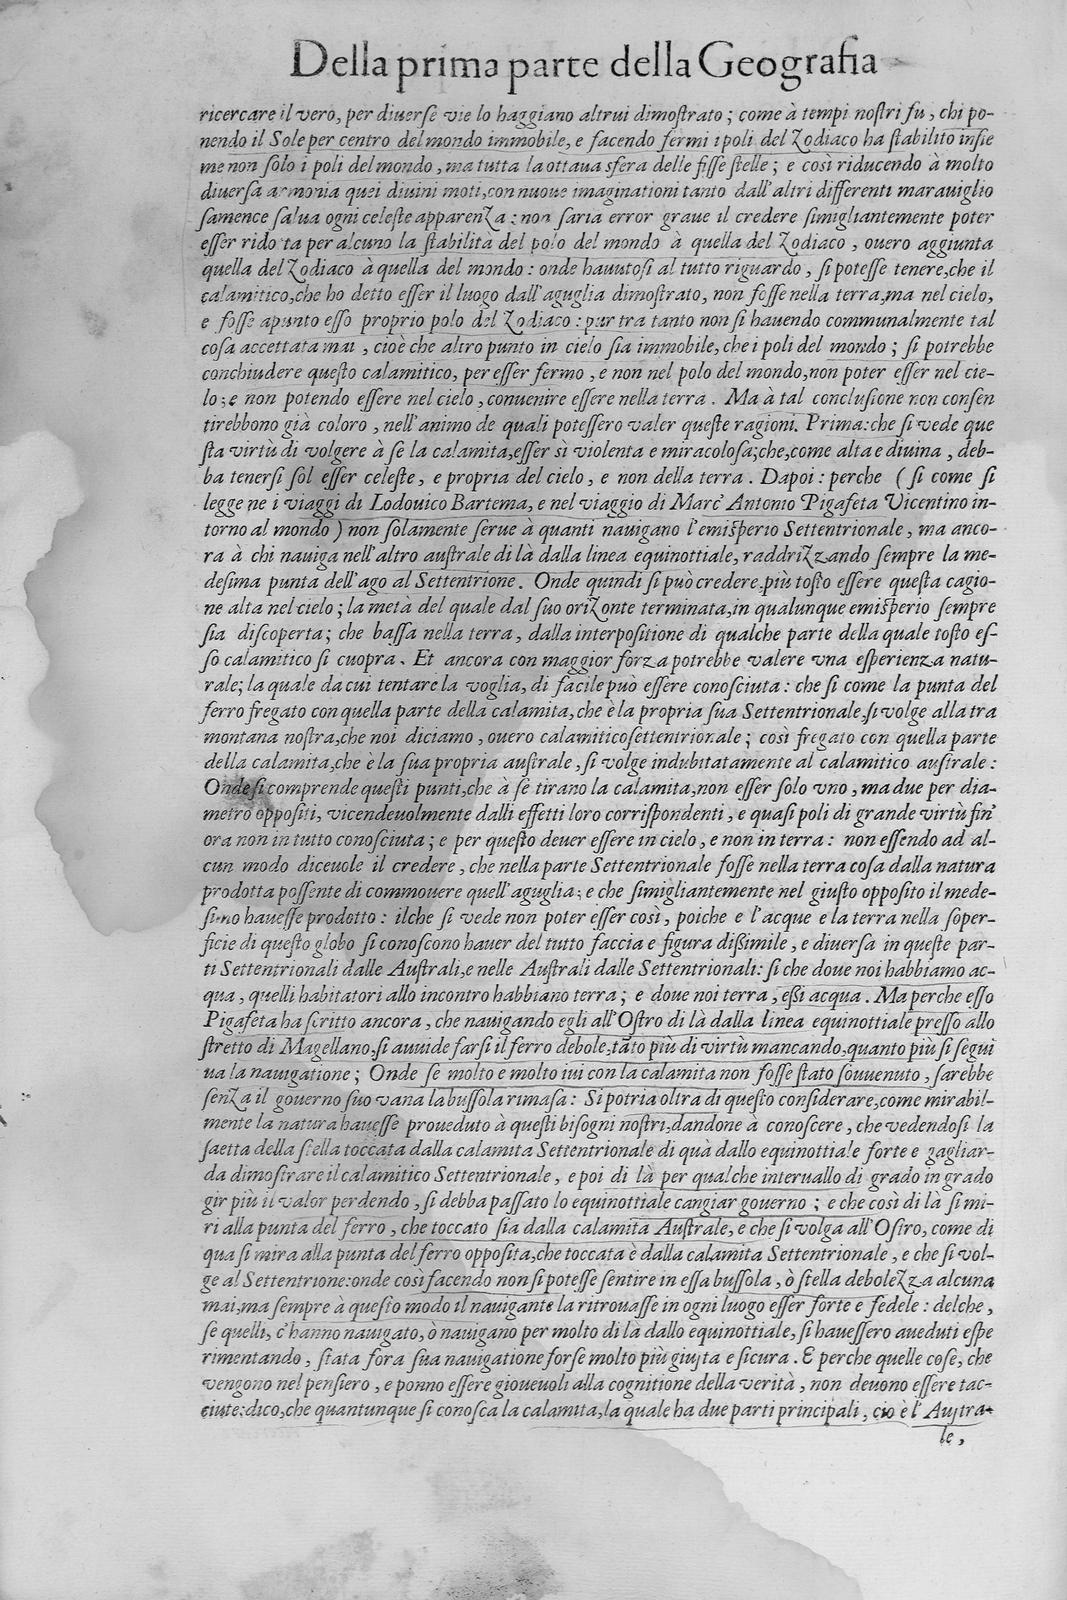 Della prima parte della Geografia
ricercare il vero, per diuerse vie lo haggiano altrui dimostrato; come à tempi nostri fu, chi po-
nendo il Sole per centro del mondo immobile, e facendo fermi i poli del Zodiaco ha stabilito insie
me non solo i poli del mondo, ma tutta la ottaua sfera delle fisse stelle; e così riducendo à molto
diuersa armonia quei diuini moti, con nuoue imaginationi tanto dall'altri differenti marauiglio
samence salua ogni celeste apparenza: non saria error graue il credere simigliantemente poter
esser ridotta per alcuno la stabilità del polo del mondo à quella del Zodiaco, ouero aggiunta
quella del Zodiaco à quella del mondo: onde hauutosi al tutto riguardo, si potesse tenere, che il
calamitico, che ho detto esser il luogo dall'aguglia dimostrato, non fosse nella terra, ma nel cielo,
e fosse apunto esso proprio polo del Zodiaco: pur tra tanto non si hauendo communalmente tal
cosa accettata mai, cioè che altro punto in cielo sia immobile, che i poli del mondo; si potrebbe
conchiudere questo calamitico, per esser fermo, e non nel polo del mondo, non poter esser nel cie-
lo; e non potendo essere nel cielo, conuenire essere nella terra. Ma à tal conclusione non consen
tirebbono già coloro, nell'animo de quali potessero valer queste ragioni. Prima: che si vede que
sta virtù di volgere à se la calamita, esser sì violenta e miracolosa; che, come alta e diuina, deb-
ba tenersi sol esser celeste, e propria del cielo, e non della terra. Dapoi: perche (si come si
legge ne i viaggi di Lodouico Bartema, e nel viaggio di Marc' Antonio Pigafeta Vicentino in-
torno al mondo) non solamente serue à quanti nauigano l'emisperio Settentrionale, ma anco-
ra à chi nauiga nell'altro australe di là dalla linea equinottiale, raddrizzando sempre la me-
desima punta dell'ago al Settentrione. Onde quindi si può credere, più tosto essere questa cagio-
ne alta nel cielo; la metà del quale dal suo orizonte terminata, in qualunque emisperio sempre
sia discoperta; che bassa nella terra, dalla interpositione di qualche parte della quale tosto es-
so calamitico si cuopra. Et ancora con maggior forza potrebbe valere vna esperienza natu-
rale; la quale da cui tentare la voglia, di facile può essere conosciuta: che si come la punta del
ferro fregato con quella parte della calamita, che è la propria sua Settentrionale, si volge alla tra
montana nostra, che noi diciamo, ouero calamitico settentrionale; così fregato con quella parte
della calamita, che è la sua propria australe, si volge indubitatamente al calamitico australe:
Onde si comprende questi punti, che à se tirano la calamita, non esser solo vno, ma due per dia-
metro oppositi, vicendeuolmente dalli effetti loro corrispondenti, e quasi poli di grande virtù fin'
ora non in tutto conosciuta; e per questo deuer essere in cielo, e non in terra: non essendo ad al-
cun modo diceuole il credere, che nella parte Settentrionale fosse nella terra cosa dalla natura
prodotta possente di commouere quell'aguglia; e che simigliantemente nel giusto opposito il mede-
simo hauesse prodotto: ilche si vede non poter esser così, poiche e l'acque e la terra nella soper-
ficie di questo globo si conoscono hauer del tutto faccia e figura dissimile, e diuersa in queste par-
ti Settentrionali dalle Australi, e nelle Australi dalle Settentrionali: si che doue noi habbiamo ac-
qua, quelli habitatori allo incontro habbiano terra; e doue noi terra, essi acqua. Ma perche esso
Pigafeta ha scritto ancora, che nauigando egli all'Ostro di là dalla linea equinottiale presso allo
stretto di Magellano, si auuide farsi il ferro debole, tāto più di virtù mancando, quanto più si segui
ua la nauigatione; Onde se molto e molto iui con la calamita non fosse stato souuenuto, sarebbe
senza il gouerno suo vana la bussola rimasa: Si potria oltra di questo considerare, come mirabil-
mente la natura hauesse proueduto à questi bisogni nostri, dandone à conoscere, che vedendosi la
saetta della stella toccata dalla calamita Settentrionale di quà dallo equinottiale forte e gagliar-
da dimostrare il calamitico Settentrionale, e poi di là per qualche interuallo di grado in grado
gir più il valor perdendo, si debba passato lo equinottiale cangiar gouerno; e che così di là si mi-
ri alla punta del ferro, che toccato sia dalla calamita Australe, e che si volga all'Ostro, come di
qua si mira alla punta del ferro opposita, che toccata è dalla calamita Settentrionale, e che si vol-
ge al Settentrione: onde così facendo non si potesse sentire in essa bussola, ò stella debolezza alcuna
mai, ma sempre à questo modo il nauigante la ritrouasse in ogni luogo esser forte e fedele: delche,
se quelli, c'hanno nauigato, ò nauigano per molto di là dallo equinottiale, si hauessero aueduti espe
rimentando, stata fora sua nauigatione forse molto più giusta e sicura. E perche quelle cose, che
vengono nel pensiero, e ponno essere gioueuoli alla cognitione della verità, non deuono essere tac-
ciute: dico, che quantunque si conosca la calamita, la quale ha due parti principali, cio è l'Austra-
le,